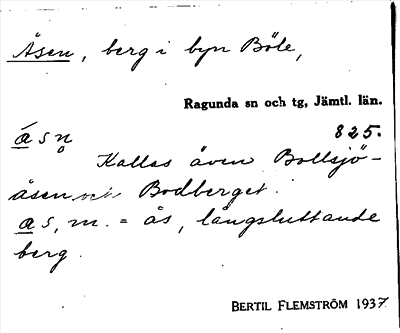 Åsen, berg i byn Böle,
Ragunda sn och tg, Jämtl. län.
á̲ s n̥ 825.
Kallas även Bollsjö-
åsen och Bodberget.
a̲ s, m. = ås, långsluttande
berg.
BERTIL FLEMSTRÖM 1937